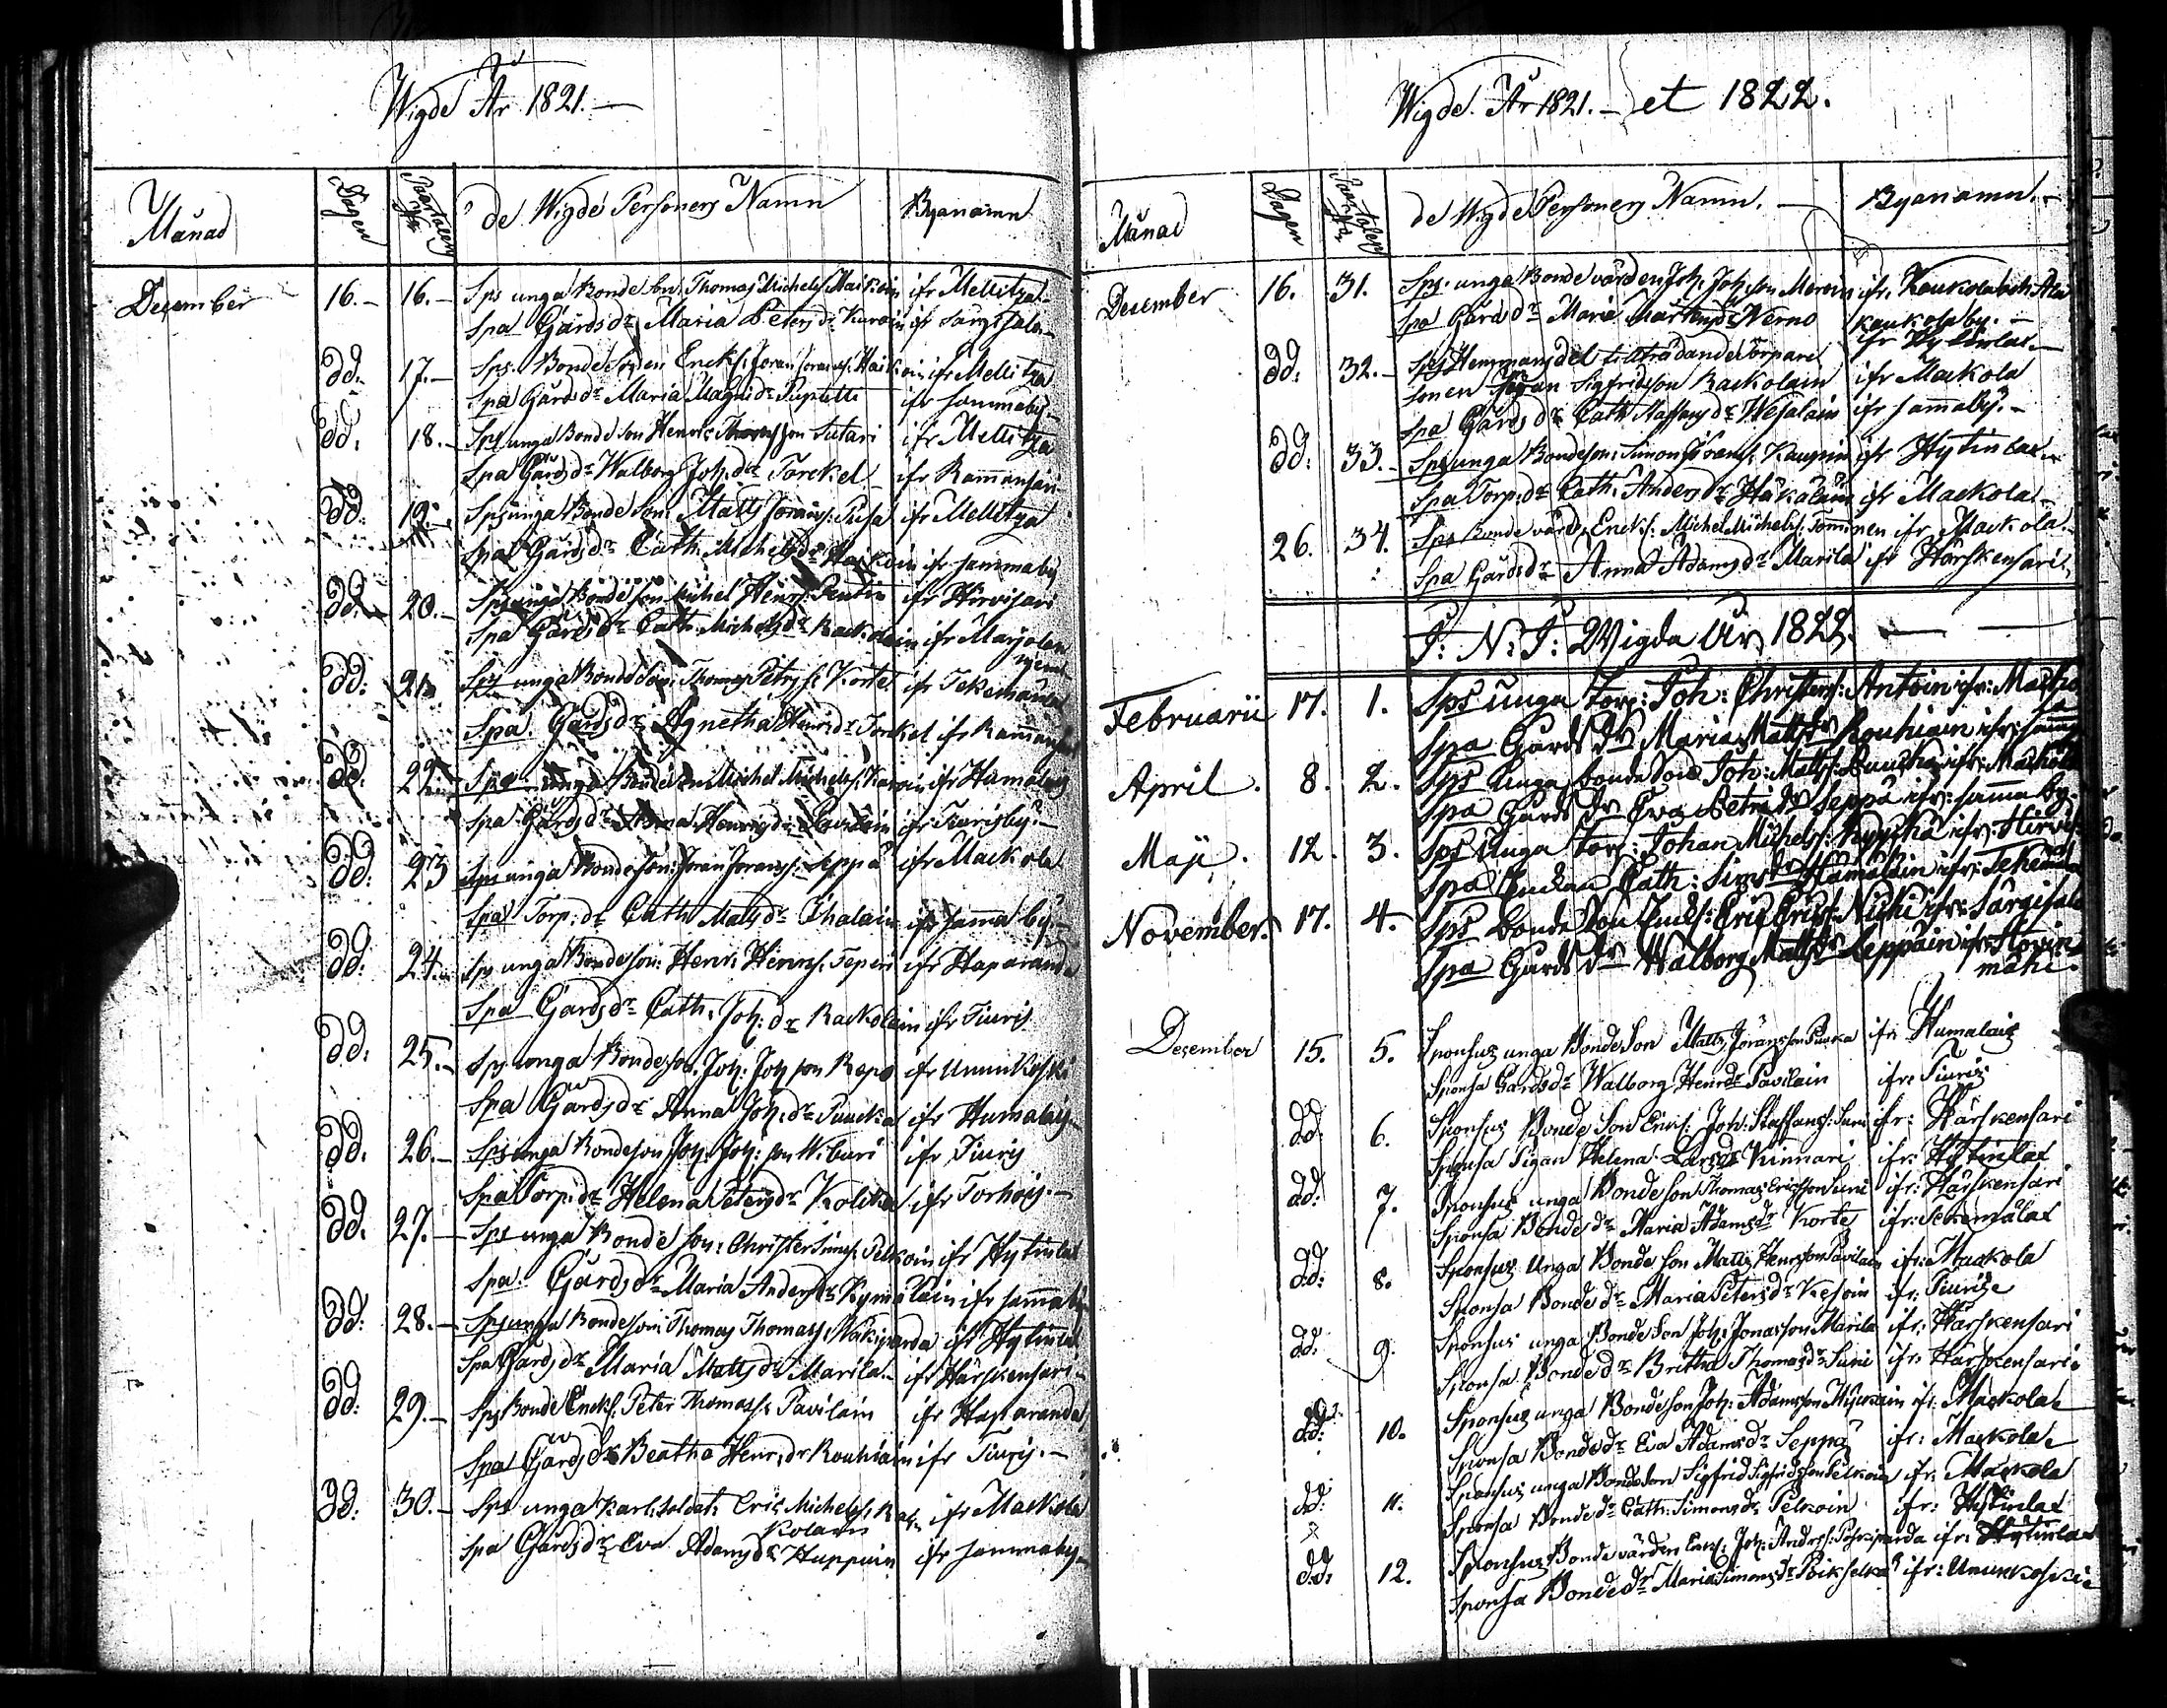 Wigde År 1821.—
Månad Dagen de Wigde Personers Namn Byanamn
December 16.— 16.— Sps unga Bonde Son Thomas Michelss Maikoin ifr Mellitza
Spa Gårds dr Maria Peters dr Karoin ifr Sargisala
dd. 17.— Sps. Bonde Sonen Enckl. Jöran Joranss. Haikoin ifr Mellitza
Spa Gårds dr Maria Magni dr ifr samma by
dd. 18.— Sps unga Bonde Son Henric Thomasson Sutari ifr Mellitza
Spa Gårds dr Walborg Joh. dr Torckel ifr Rammansari
dd. 19.— Sps unga Bonde Son Matts Jöranss. Tusa ifr Mellitza
Spa Gårds dr Cath. Michels dr Haikoin ifr samma by
dd. 20.— Sps unga Bonde Son Michel Henrs. Pentin ifr Hirvisari
Spa Gårds dr Cath. Michels dr Rackolain ifr Marjolan
niemi
dd. 21. Sps unga Bonde Son Thomas Petrss. Korte ifr
Spa Gårds dr Agnetha Henrs dr Torckel ifr Rammansari
dd. 22. Sps unga Bonde Son Michel Michelss. Karoin ifr Humalais
Spa Gårds dr Anna Henrics dr Pavilain ifr Tiuris by
dd. 23 Sps unga Bonde Son Jöran Joranss. Seppä ifr Mackola
Spa Torp. dr Cath Matts dr Ihalain ifr samma by
dd. 24. Sps unga Bonde Son Henr. Henrss. Teperi ifr Haparanda
Spa Gårds dr Cath. Joh. dr Rackolain ifr Tiuris
dd. 25.— Sps unga Bonde Son Joh. Joh son Repo ifr Unnunkoski
Spa Gårds dr Anna Joh. dr Puucka ifr Humalais
dd. 26.— Sps unga Bonde Son Joh. Joh. son Wiburi ifr Tiuris
Spa Torp. dr Helena Peters dr ifr Torhois
dd. 27.— Sps unga Bonde Son Christer Simss. Pelkoin ifr Hytinlax
Spa Gårds dr Maria Anders dr Kymäläin ifr samma by
dd. 28.— Sps unga Bonde Son Thomas Thomass. Näkiparda ifr Hytinlax
Spa Gårds dr Maria Matts dr Marila ifr Härskensari
dd. 29.— Sps Bonde Enckl. Peter Thomass. Pavilain ifr Haparanda
Spa Gårds dr Beatha Henr. dr Rouhiain ifr Tiuris.—
dd. 30.— Sps unga Karl. Soldat. Eric Michelss. Rac ifr Mackola
kolain
Spa Gårds dr Eva Adams dr Huppoin ifr samma by
Wigde År 1821.— et 1822.
Månad Dagen de Wigde Personers Namn.— Byanamn.—
December 16. 31. Sps. unga Bonde värden Joh. Joh. son Moroin ifr. Kaukola och Ala
Spa Gårds dr Maria Mårtens dr Werno kaukola by.—
ifr Hytinlax
dd. 32.— Sps Hemmans del tillträdande Torpare
sonen Jöran Sigfridsson Rackolain ifr Mackola
Spa Gårds dr Cath Staffans dr Wesalain ifr samma by.—
dd. 33.— Sps unga Bonde Son Simon Jöranss. Kaupin ifr Hytinlax
Spa Torp. dr Cath. Anders dr Häkäläin ifr Mackola
26. 34. Sps Bonde värd. Enckl. Michel Michelss. Tominen ifr Mackola
Spa Gårds dr Anna Adams dr Marila ifr Härskensari
J: N: J: Wigda År 1822.—
Februarii 17. 1. Sps unga Torp: Joh: Christerss: Antoin ifr: Macko
la
Spa Gårds dr Maria Matts dr Rouhiain ifr: samma
April. 8. 2. Sps Unga bonde Son Joh: Matss: Puucka ifr: Mackola
Spa Gårds dr Eva Petri dr Seppä ifr: samma by.
Maji. 12. 3. Sps Unga Torp: Johan Michelss: ifr: Hirvis
Spa Enckan Cath: Sims dr Hämäläin ifr:
November. 17. 4. Sps bonde Son Enckl: Eric Ericss: ifr: Särgisalo
Spa Gårds dr Walborg Matts dr Leppäin ifr: Hovin
mäki.
December 15. 5. Sponsus unga Bonde Son Matts Jöransson Puucka ifr: Humalais
Sponsa Gårds dr Walborg Henrs dr Pavilain ifr: Tiuris
dd. 6. Sponsus Bonde Son Enkl: Joh: Staffanss: Suni ifr: Härskensari
Sponsa Pigan Helena Lars dr Kinnari ifr: Hytinlax
dd. 7. Sponsus unga Bonde Son Thomas Ericsson Suni ifr: Härskensari
Sponsa Bonde dr Maria Adams dr Korte ifr:
dd: 8. Sponsus Unga Bonde Son Matts Henrsson Pavilain ifr: Mackola
Sponsa Bonde dr Maria Peters dr Kesoin ifr: Tiuris
dd. 9. Sponsus unga Bonde Son Joh: Jonasson Marila ifr: Härskensari
Sponsa Bonde dr Britha Thomas dr Suni ifr: Härskensari
dd: 10. Sponsus unga Bonde Son Joh: Adamsson ifr: Mackola
Sponsa Bonde dr Eva Adams dr Seppä ifr: Mackola
dd: 11. Sponsus unga Bonde Son Sigfrid Sigfridsson Pelkoin ifr: Mackola
Sponsa Bonde dr Cath: Simons dr Pelkoin ifr: Hytinlax
dd. 12. Sponsus Bonde värden Enkl: Joh: Anderss: ifr: Hytinlax
Sponsa Bonde dr Maria Simons dr Poikselkä ifr: Unnunkoski